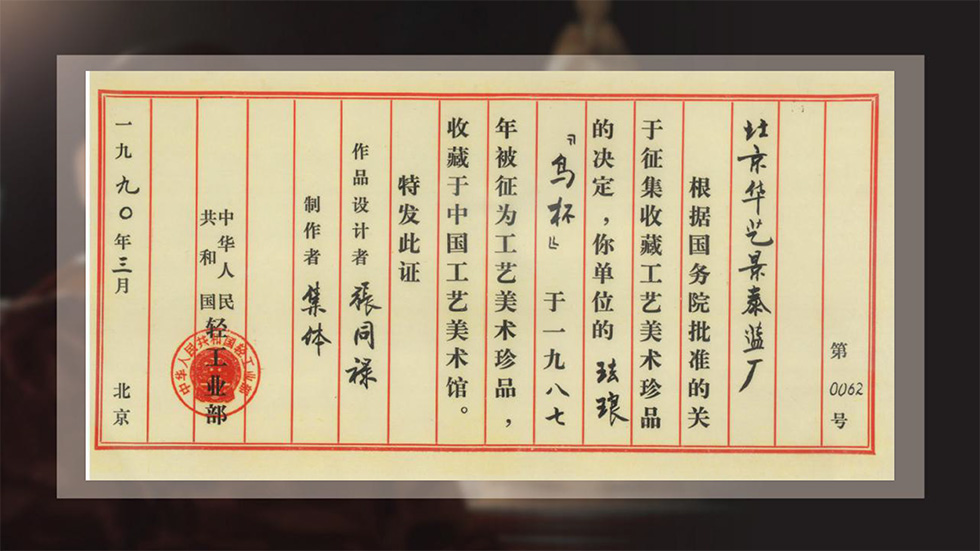 第0062号
北京华艺景泰蓝厂
根据国务院批准的关
于征集收藏工艺美术珍品
的决定，你单位的珐琅
『鸟杯』于一九八七
年被征为工艺美术珍品，
收藏于中国工艺美术馆。
特发此证
作品设计者 張同禄
制作者 集体
中华人民
共和国
轻工业部
中华人民共和国轻工业部
一九九〇年三月 北京